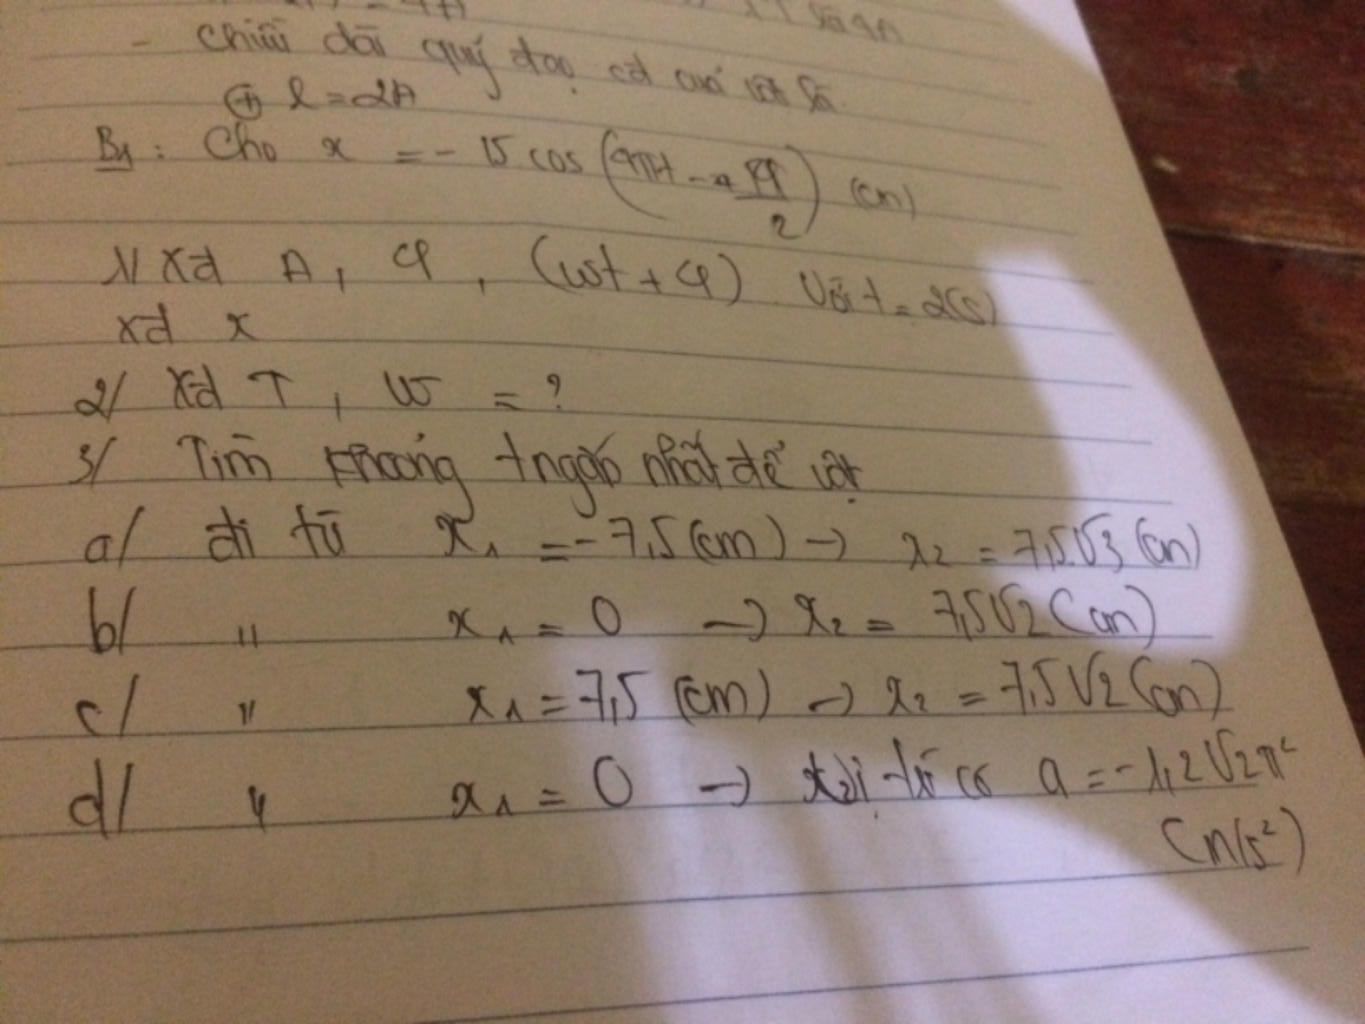 - chiều dài quỹ đạo cđ của vật là
⊕ l = 2A
B1: Cho x = - 15 cos (4πt - π/2) (cm)
1/ Xđ A, φ, (ωt + φ) Với t = 2(s)
xđ x
2/ Xđ T, ω = ?
3/ Tìm khoảng t ngắn nhất để vật
a/ đi từ x1 = -7,5 (cm) → x2 = 7,5√3 (cm)
b/ " x1 = 0 → x2 = 7,5√2 (cm)
c/ " x1 = 7,5 (cm) → x2 = 7,5√2 (cm)
d/ " x1 = 0 → vị trí có a = -1,2√2π²
(m/s²)